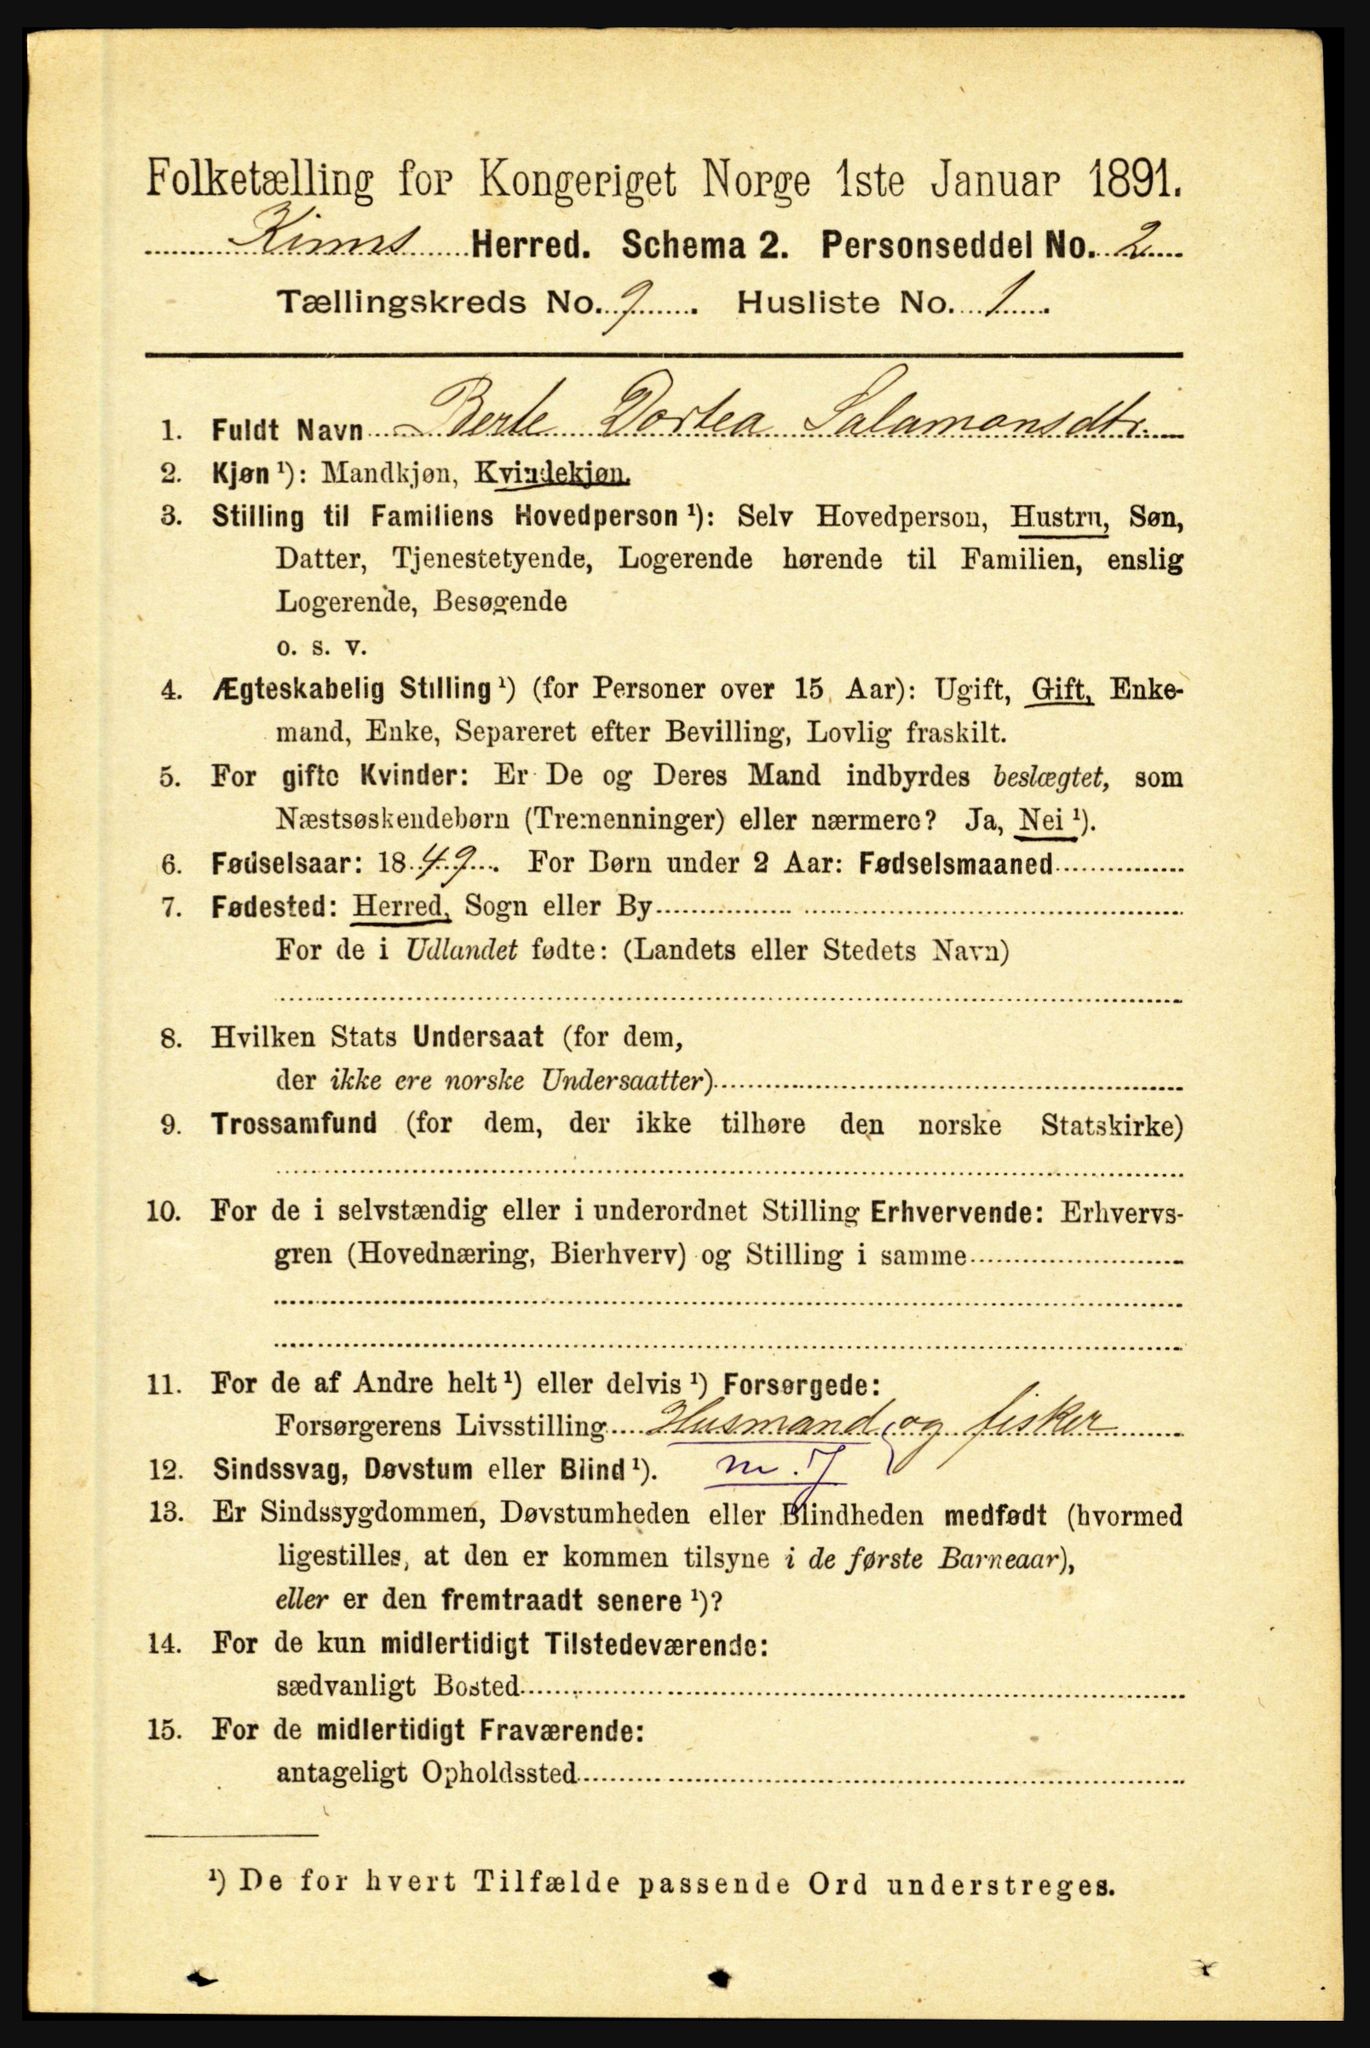 Folketælling for Kongeriget Norge 1ste Januar 1891.
Kinns Herred. Schema 2. Personseddel No. 2
Tællingskreds No. 9. Husliste No. 1.
1. Fuldt Navn Berte Dortea Salamonsdtr.
2. Kjøn ¹): Mandkjøn, Kvindekjøn.
3. Stilling til Familiens Hovedperson ¹): Selv Hovedperson, Hustru, Søn,
Datter, Tjenestetyende, Logerende hørende til Familien, enslig
Logerende, Besøgende
o. s. v.
4. Ægteskabelig Stilling ¹) (for Personer over 15 Aar): Ugift, Gift, Enke-
mand, Enke, Separeret efter Bevilling, Lovlig fraskilt.
5. For gifte Kvinder: Er De og Deres Mand indbyrdes beslægtet, som
Næstsøskendebørn (Tremenninger) eller nærmere? Ja, Nei ¹).
6. Fødselsaar: 1849. For Børn under 2 Aar: Fødselsmaaned
7. Fødested: Herred, Sogn eller By
For de i Udlandet fødte: (Landets eller Stedets Navn)
8. Hvilken Stats Undersaat (for dem,
der ikke ere norske Undersaatter)
9. Trossamfund (for dem, der ikke tilhøre den norske Statskirke)
10. For de i selvstændig eller i underordnet Stilling Erhvervende: Erhvervs-
gren (Hovednæring, Bierhverv) og Stilling i samme
11. For de af Andre helt ¹) eller delvis ¹) Forsørgede:
Forsørgerens Livsstilling Husmand og fisker
12. Sindssvag, Døvstum eller Blind ¹). m. J
13. Er Sindssygdommen, Døvstumheden eller Blindheden medfødt (hvormed
ligestilles, at den er kommen tilsyne i de første Barneaar),
eller er den fremtraadt senere ¹)?
14. For de kun midlertidigt Tilstedeværende:
sædvanligt Bosted
15. For de midlertidigt Fraværende:
antageligt Opholdssted
¹) De for hvert Tilfælde passende Ord understreges.